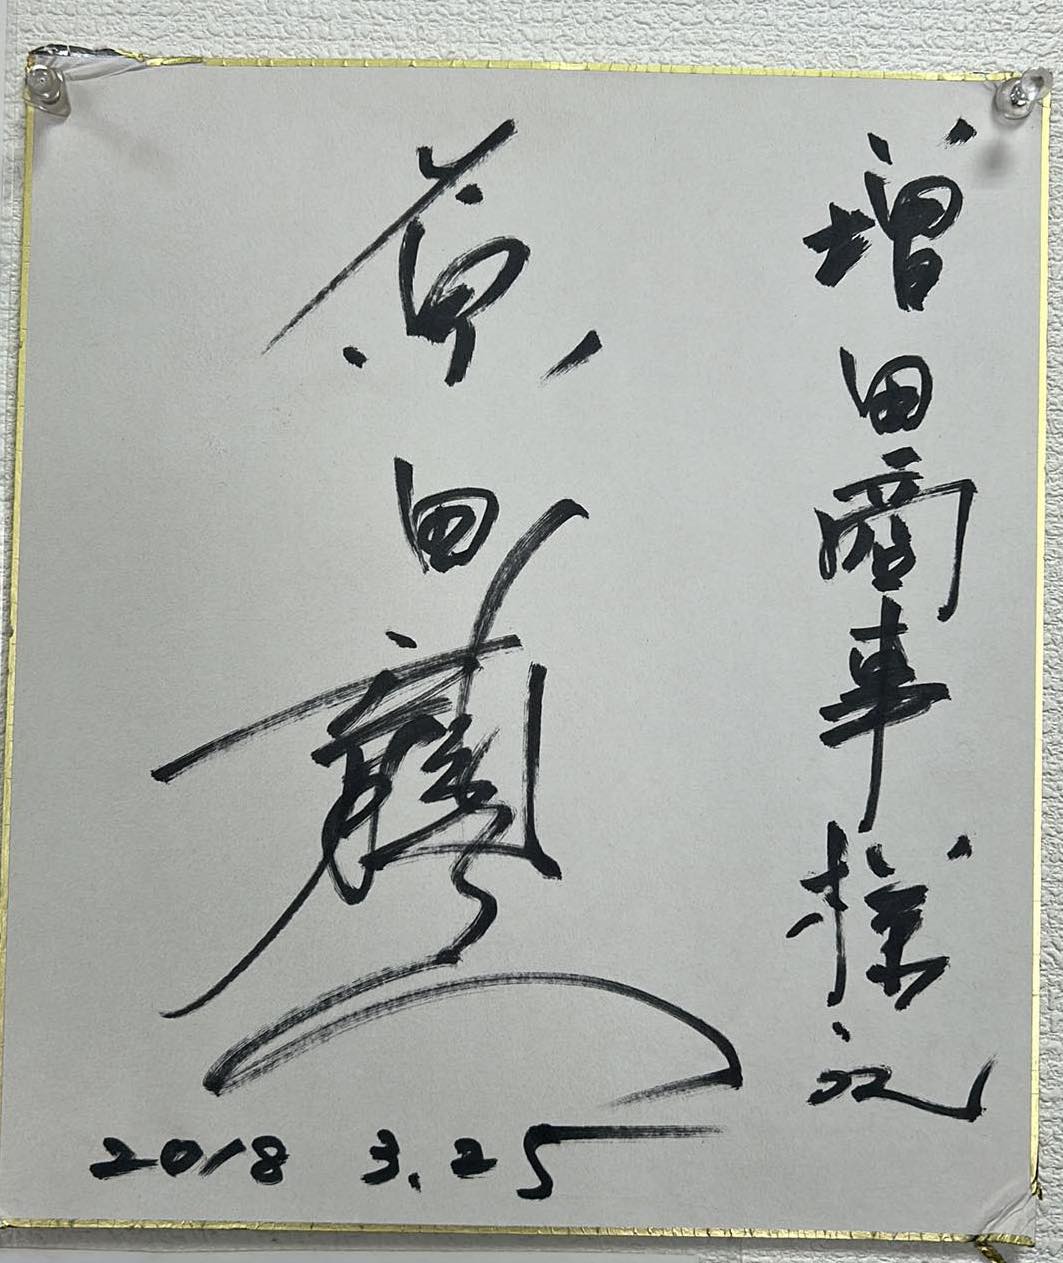 増田商事様
原田
2018 3.25